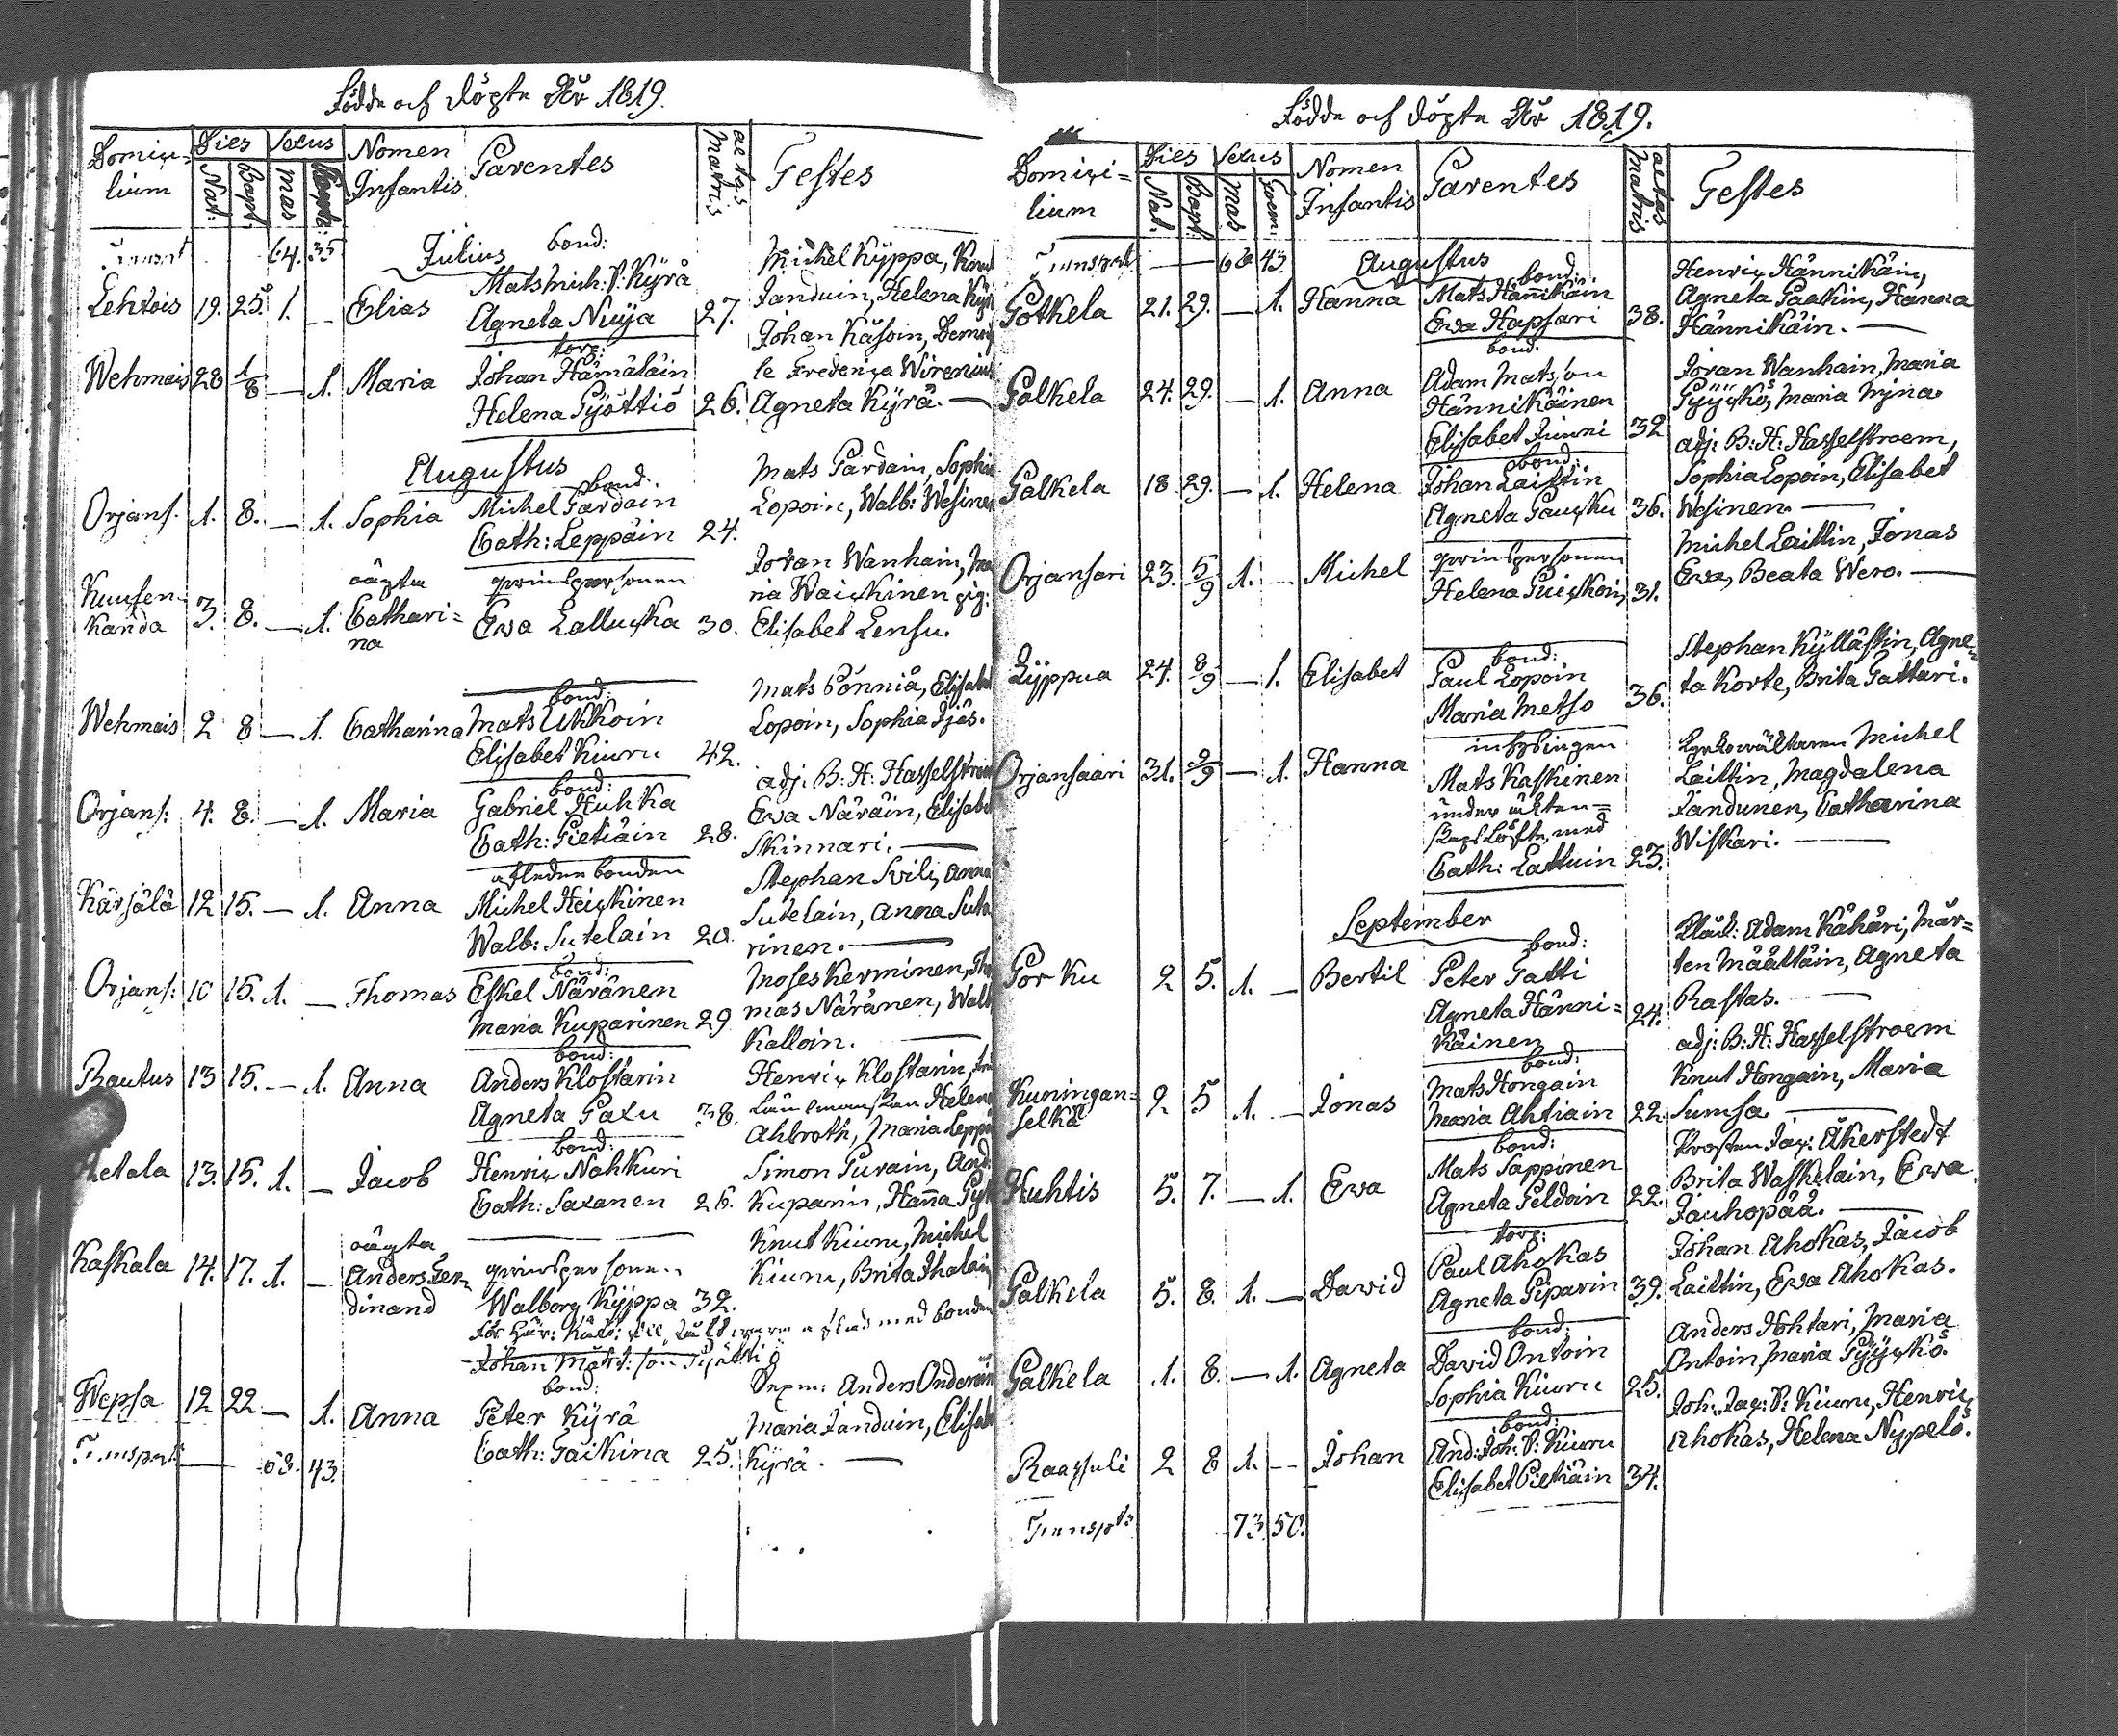 Födde och döpte År 1819.
Domici- Dies Sexus Nomen Parentes aetas Testes
lium Nat: Bapt: Mas Infantis matris
Transpt 64. 35 Julius bond: Michel Kyppä, Knut
Lehtois 19. 25. 1. — Elias Mats Mich: S: Kyrä
Agneta Nuija 27. Janduin, Helena
Johan Käsoin,
Wehmais 28 1/8 — 1. Maria torp: Johan Hämäläin
Helena Pyöttiö 26. le Fredrica Wirenius
Agneta Kyrä. —
Augustus
Orjans. 1. 8. — 1. Sophia bond: Michel Pärdäin
Cath: Leppäin 24. Mats Pärdäin, Sophia
Lopoin, Walb: Wesinen
Kuusen- oägta qvinspersonen Joran Wanhain,
kanda 3. 8. — 1. Cathari- Ewa Lallucka 30. ria Waickinen pig:
na Elisabet Lensu.
Wehmais 2 8 — 1. Catharina bond: Mats Ukkoin
Elisabet Kiuru 42. Mats Pönniä, Elisabet
Lopoin, Sophia Ijäs.
Orjans: 4. 8. — 1. Maria bond: Gabriel Huhka
Cath: Pietiäin 28. adj: B: H: Hasselstroem
Ewa Näräin, Elisabet
Skinnari. —
Kärsälä 12 15. — 1. Anna afledne bonden
Michel Heickinen
Walb: Sutelain 20. Stephan Svili, Anna
Sutelain, Anna Suta
rinen. —
Orjans: 10 15. 1. — Thomas bond: Eskel Näränen
Maria Kuparinen 29 Moses Kerminen, Tho
mas Näränen, Walb
Kalloin. —
Rautus 13 15. — 1. Anna bond: Anders Klostarin
Agneta Paxu 38. Henric Klostarin,
Länsmanskan Helena
Ahlroth, Maria Leppä
Hetala 13. 15. 1. — Jacob bond: Henric Nahkuri
Cath: Saxanen 26. Simon Purain, And:
Kuparin, Hanna
Kaskala 14. 17. 1. — oägta Anders Fer-
dinand qvinspersonen
Walborg Kyppä 32. Knut Kiuru, Michel
Kiuru, Brita Ihalain
med bonden
Johan Matt: son
Wepsa 12 22 — 1. Anna bond: Peter Kyrä
Cath: Paikina 25. Anders Onderoin
Maria Janduin, Elisabet
Kyrä. —
Transpt — 68. 43.
Födde och döpte År 1819.
Domici- Dies Sexus Nomen Parentes aetas Testes
lium Nat. Bapt: Mas Foem: Infantis matris
Transpt — 68 43. Augustus
Potkela 21. 29. — 1. Hanna bond: Mats Hännikäin
Ewa Hapsari 38. Henric Hännikäin,
Agneta Paakin, Hanna
Hännikäin. —
Palkela 24. 29. — 1. Anna bond. Adam Matsson
Hännikäinen
Elisabet Juuni 32 Joran Wanhain, Maria
Pyyckö, Maria Nyna.
Palkela 18 29. — 1. Helena bond: Johan Laittin
Agneta Paucku 36. adj: B: H: Hasselstroem,
Sophia Lopoin, Elisabet
Wesinen. —
Orjansari 23. 5/9 1. — Michel qvinspersonen
Helena Puickoin 31. Michel Laittin, Jonas
Ewa, Beata Wero. —
Lyppua 24. 8/9 — 1. Elisabet bond: Paul Lopoin
Maria Metso 36. Stephan Kylläстin, Agne-
ta Korte, Brita Tattari.
Orjansaari 31. 9/9 — 1. Hanna inhysingen
Mats Kaskinen
under äkten-
skaps Löfte, med
Cath: Lattuin 23. Kyrkowäktaren Michel
Laittin, Magdalena
Jandunen, Catharina
Wiskari. —
September
Porku 2 5. 1. — Bertil bond: Peter Tatti
Agneta Hänni- 24.
käinen Adam Kähäri, Mär-
ten Määttäin, Agneta
Rastas. —
Kuningan- 2. 5 1. — Jonas bond: Mats Hongain
selkä Maria Ahtiain 22. adj: B: H: Hasselstroem
Knut Hongain, Maria
Sumsa —
Huhtis 5. 7. — 1. Ewa bond: Mats Säppinen
Agneta Peldoin 22. Prosten Jac: Åkerstedt
Brita Waskelain, Ewa
Jauhopää. —
Palkela 5. 8. 1. — Dawid torp: Paul Ahokas
Agneta Piparin 39. Johan Ahokas, Jacob
Laittin, Ewa Ahokas.
Palkela 1. 8. — 1. Agneta bond: David Ontoin
Sophia Kiuru 25. Anders Hohtari, Maria
Ontoin, Maria Pyyckö.
Raasuli 2 8 1. — Johan bond: And: Joh: S: Kiuru
Elisabet Pietiäin 34. Joh: Jac: S: Kiuru, Henric
Ahokas, Helena Nypelö.
Transpt 73. 50.